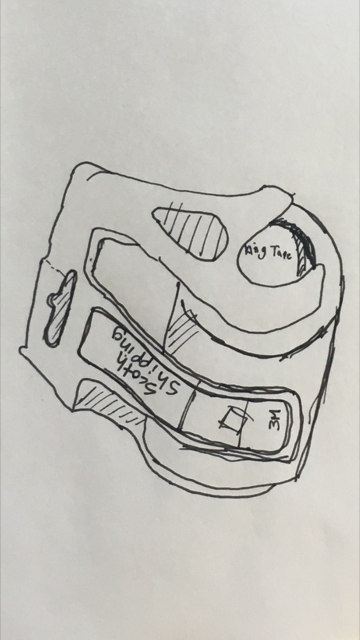 ping Tape
Scoth
Shipping
3M